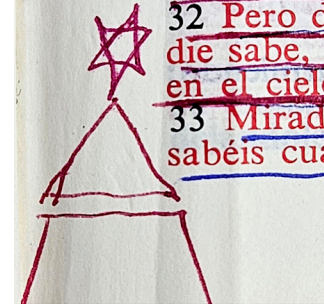 32 Pero d
die sabe,
en el ciel
33 Mirad
sabéis cua